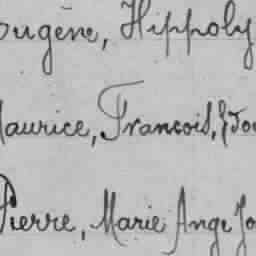 ougène, Hippoly
aurice, François, Edou
Pierre, Marie Ange Jo